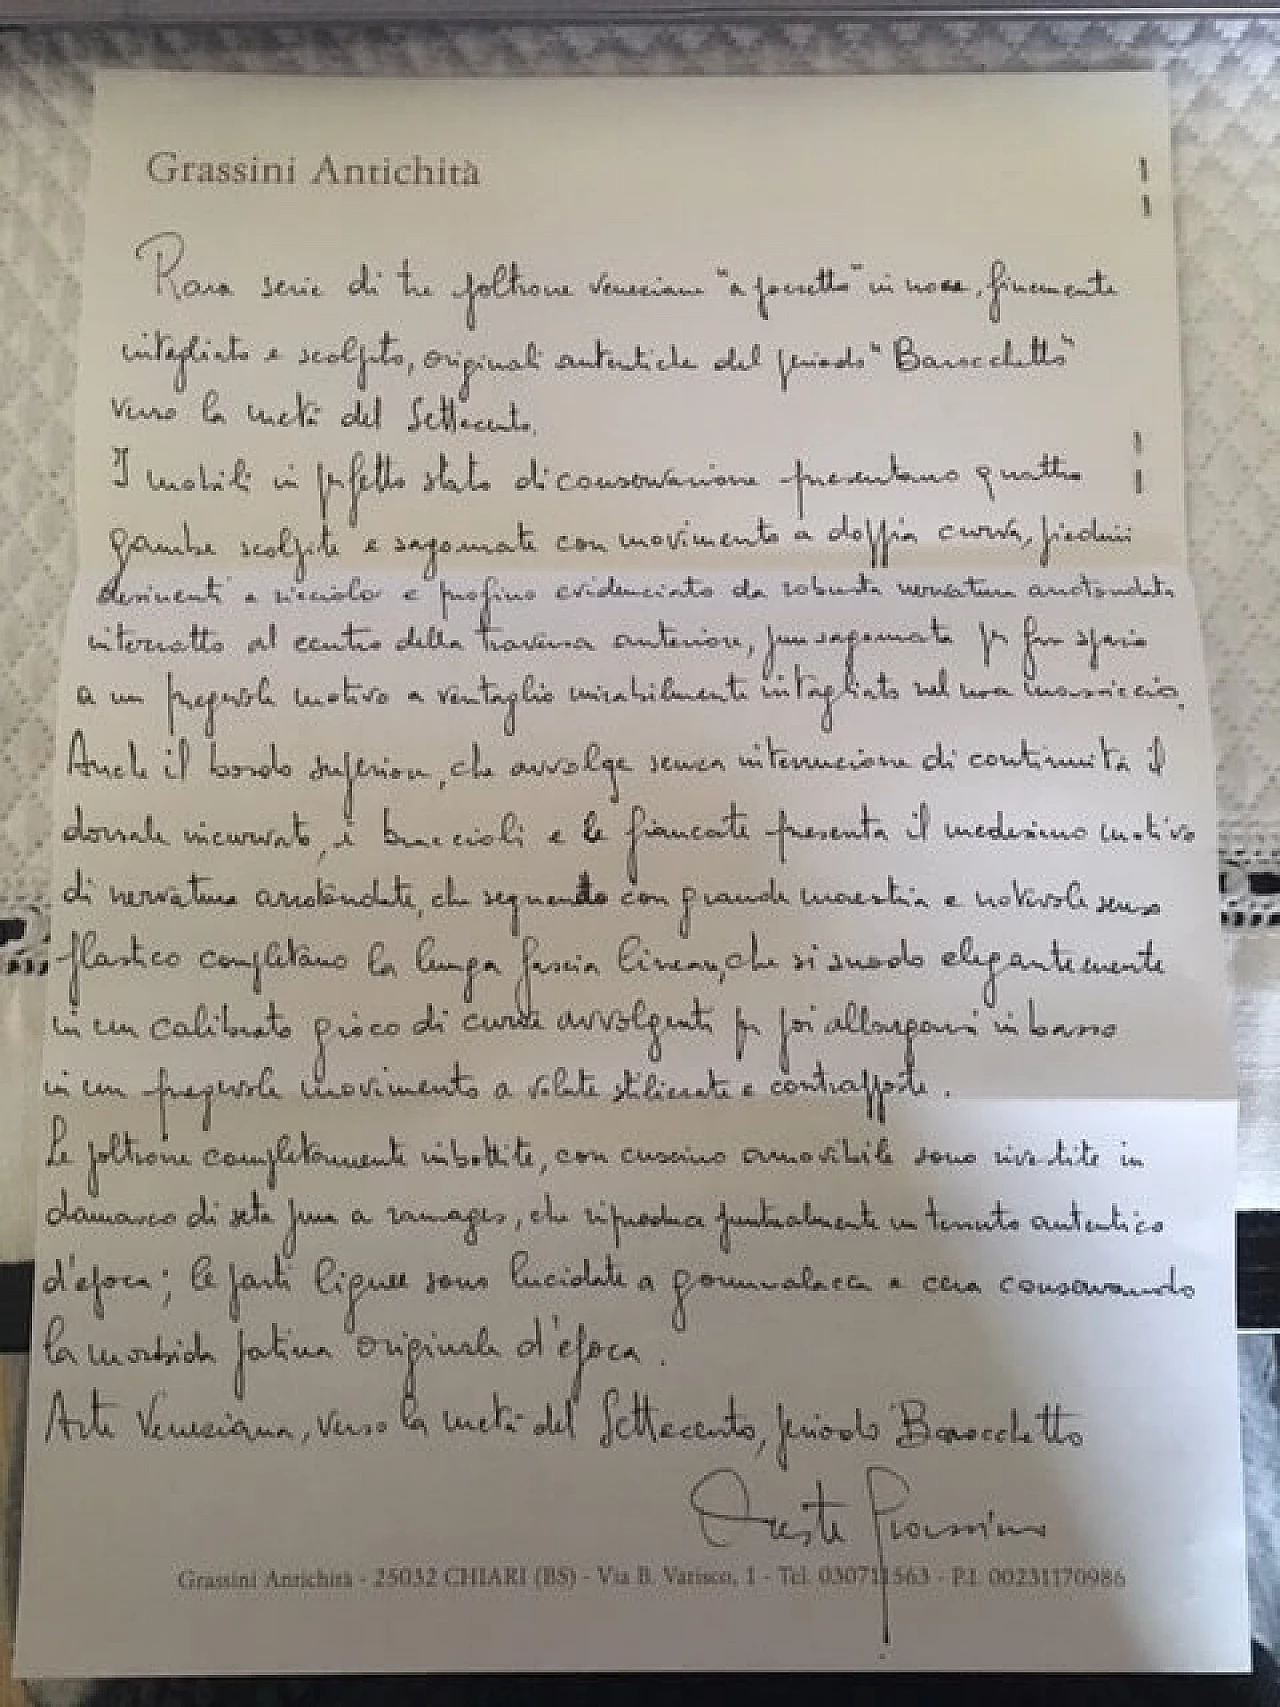 Grassini Antichità
Rara serie di tre poltrone veneziane "a pozzetto" in noce, finemente
intagliato e scolpito, originali autentiche del periodo "Barocchetto"
verso la metà del Settecento.
I mobili in perfetto stato di conservazione presentano quattro
gambe scolpite e sagomate con movimento a doppia curva, piedini
desinenti a ricciolo e profino evidenciato da robusta nervatura arrotondata
interrotto al centro della traversa anteriore, pur sagomata per far spazio
a un pregevole motivo a ventaglio mirabilmente intagliato nel noce massiccio.
Anche il bordo superiore, che avvolge senza interruzione di continuità il
dorsale incurvato, i braccioli e le fiancate presenta il medesimo motivo
di nervatura arrotondate, che seguendo con grande maestria e notevole senso
plastico completano la lunga fascia lineare, che si snoda elegantemente
in un calibrato gioco di curve avvolgenti per poi allargarsi in basso
in un pregevole movimento a volute stilizzate e contrapposte.
Le poltrone completamente imbottite, con cuscino amovibile sono rivestite in
damasco di seta pura a ramages, che riproduce puntualmente un tessuto autentico
d'epoca; le parti lignee sono lucidate a gommalacca e cera conservando
la morbida patina originale d'epoca.
Arte Veneziana, verso la metà del Settecento, periodo Barocchetto
Oreste Grassini
Grassini Antichità - 25032 CHIARI (BS) - Via B. Varisco, 1 - Tel. 030711563 - P.I. 00231170986